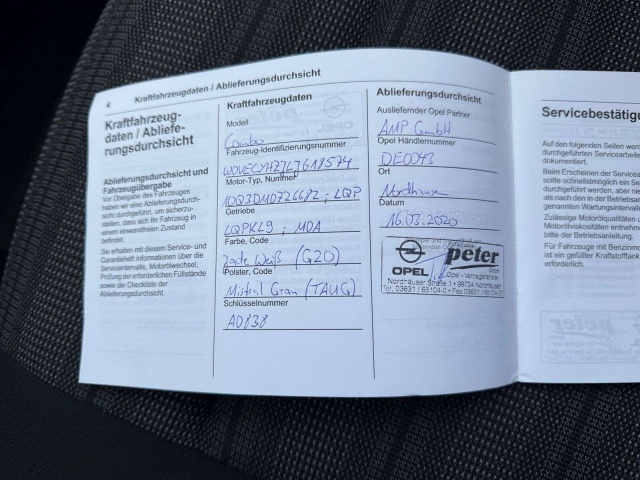 4 Kraftfahrzeugdaten / Ablieferungsdurchsicht
Kraftfahrzeug-
daten / Abliefe-
rungsdurchsicht
Ablieferungsdurchsicht und
Fahrzeugübergabe
Vor Übergabe des Fahrzeuges
haben wir eine Ablieferungsdurch-
sicht durchgeführt, um sicherzu-
stellen, dass sich Ihr Fahrzeug in
einem einwandfreien Zustand
befindet.
Sie erhalten mit diesem Service- und
Garantieheft Informationen über die
Serviceintervalle, Motorölwechsel,
Prüfung der erforderlichen Füllstände
sowie die Checkliste der
Ablieferungsdurchsicht.
Kraftfahrzeugdaten
Modell
Combo
Fahrzeug-Identifizierungsnummer
Motor-Typ, Nummer
Getriebe
LQPKL9 ; MDA
Farbe, Code
Jade Weiß (G20)
Polster, Code
Mistral Grau (TAUG)
Schlüsselnummer
A0838
Ablieferungsdurchsicht
Ausliefernder Opel Partner
AMP GmbH
Opel Händlernummer
DE0043
Ort
Nordhausen
Datum
16.03.2020
OPEL
peter
GmbH
Opel - Vertragshändler
Nordhäuser Straße 1 • 99734 Nordhausen
Tel. 03631 / 65104-0 • Fax 03631 /
Auf den folgenden Seiten
durchgeführten Servicearbeiten
dokumentiert.
Beim Erscheinen der
sollte schnellstmöglich ein
durchgeführt werden, aber
als nach den in der
genannten Wartungsintervalle
Zulässige Motorölqualitäten
Motorölviskositäten
bitte der Betriebsanleitung.
Für Fahrzeuge mit
ist ein gefüllter
erforderlich.